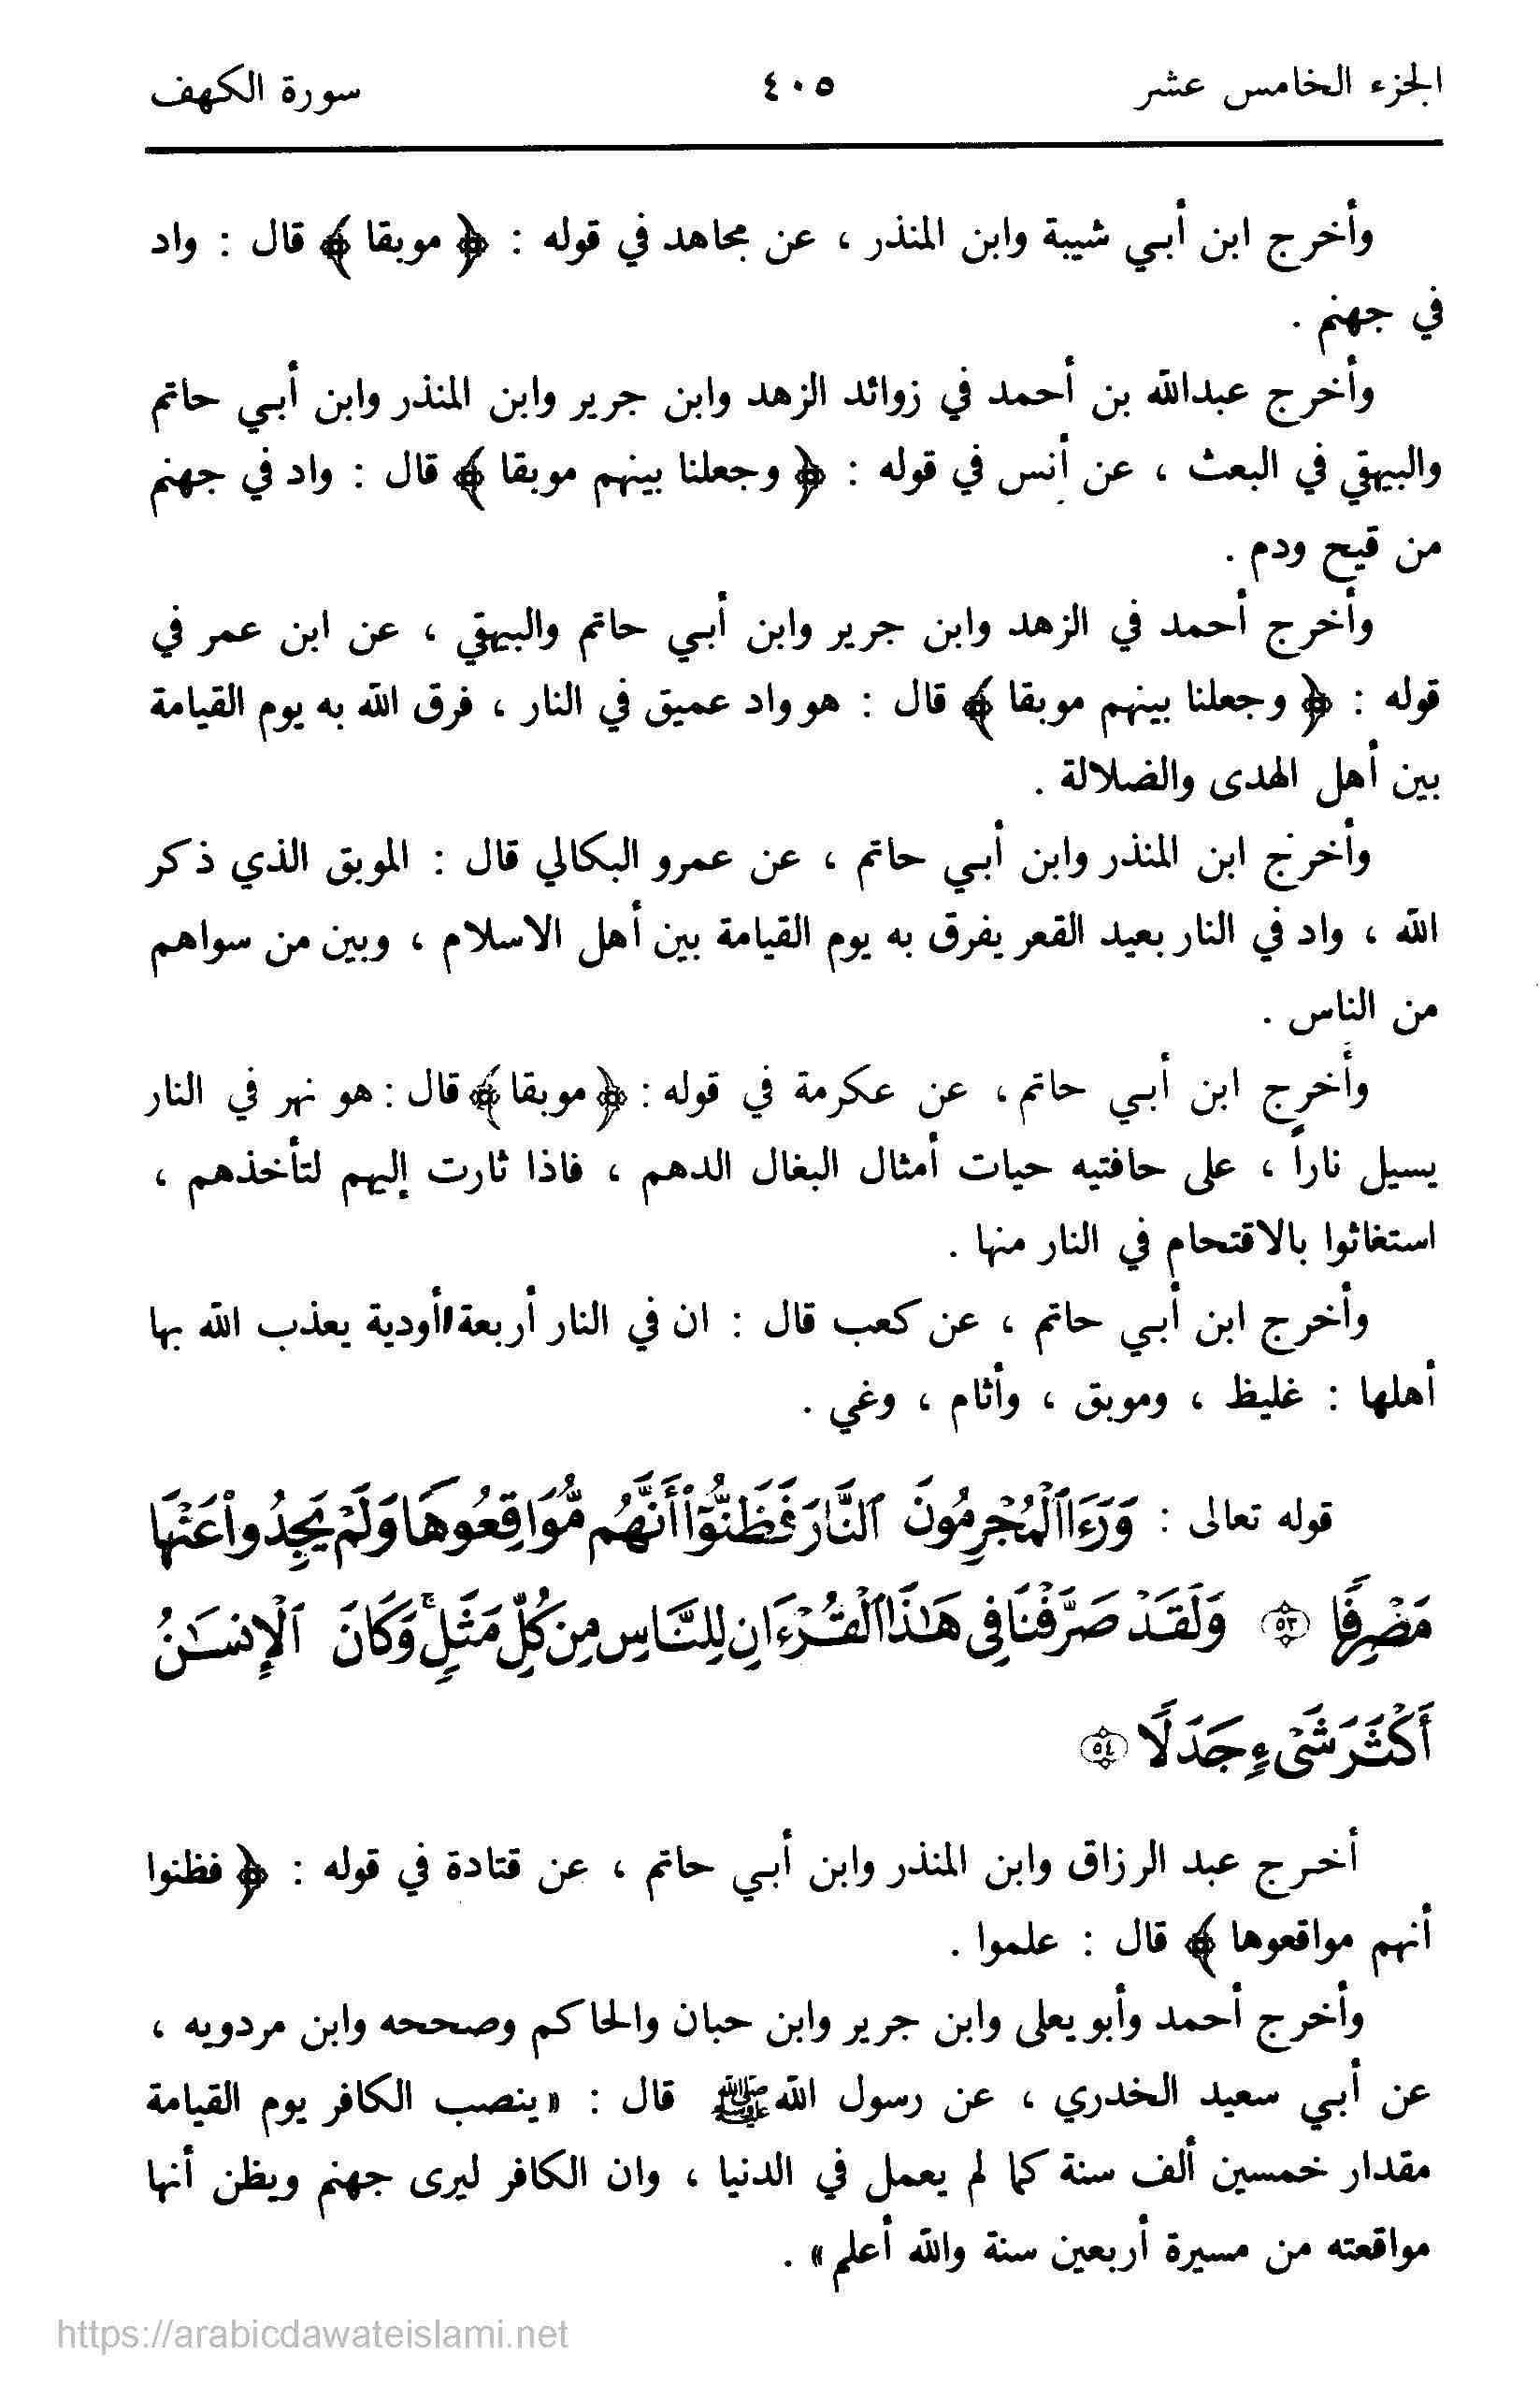 الجزء الخامس عشر ٤٠٥ سورة الكهف
وأخرج ابن أبي شيبة وابن المنذر ، عن مجاهد في قوله : ﴿ موبقا ﴾ قال : واد
في جهنم .
وأخرج عبدالله بن أحمد في زوائد الزهد وابن جرير وابن المنذر وابن أبي حاتم
والبيهقي في البعث ، عن أنس في قوله : ﴿ وجعلنا بينهم موبقا ﴾ قال : واد في جهنم
من قيح ودم .
وأخرج أحمد في الزهد وابن جرير وابن أبي حاتم والبيهقي ، عن ابن عمر في
قوله : ﴿ وجعلنا بينهم موبقا ﴾ قال : هو واد عميق في النار ، فرق الله به يوم القيامة
بين أهل الهدى والضلالة .
وأخرج ابن المنذر وابن أبي حاتم ، عن عمرو البكالي قال : الموبق الذي ذكر
الله ، واد في النار بعيد القعر يفرق به يوم القيامة بين أهل الاسلام ، وبين من سواهم
من الناس .
وأخرج ابن أبي حاتم ، عن عكرمة في قوله : ﴿ موبقا ﴾ قال : هو نهر في النار
يسيل ناراً ، على حافتيه حيات أمثال البغال الدهم ، فاذا ثارت إليهم لتأخذهم ،
استغاثوا بالاقتحام في النار منها .
وأخرج ابن أبي حاتم ، عن كعب قال : ان في النار أربعة أودية يعذب الله بها
أهلها : غليظ ، وموبق ، وأثام ، وغي .
قوله تعالى : وَرَءَا ٱلْمُجْرِمُونَ ٱلنَّارَ فَظَنُّوٓا۟ أَنَّهُم مُّوَاقِعُوهَا وَلَمْ يَجِدُوا۟ عَنْهَا
مَصْرِفًا ۝٥٣ وَلَقَدْ صَرَّفْنَا فِى هَـٰذَا ٱلْقُرْءَانِ لِلنَّاسِ مِن كُلِّ مَثَلٍۚ وَكَانَ ٱلْإِنسَـٰنُ
أَكْثَرَ شَىْءٍ جَدَلًا ۝٥٤
أخرج عبد الرزاق وابن المنذر وابن أبي حاتم ، عن قتادة في قوله : ﴿ فظنوا
أنهم مواقعوها ﴾ قال : علموا .
وأخرج أحمد وأبو يعلى وابن جرير وابن حبان والحاكم وصححه وابن مردويه ،
عن أبي سعيد الخدري ، عن رسول الله ﷺ قال : «ينصب الكافر يوم القيامة
مقدار خمسين ألف سنة كما لم يعمل في الدنيا ، وان الكافر ليرى جهنم ويظن أنها
مواقعته من مسيرة أربعين سنة والله أعلم» .
https://arabicdawateislami.net